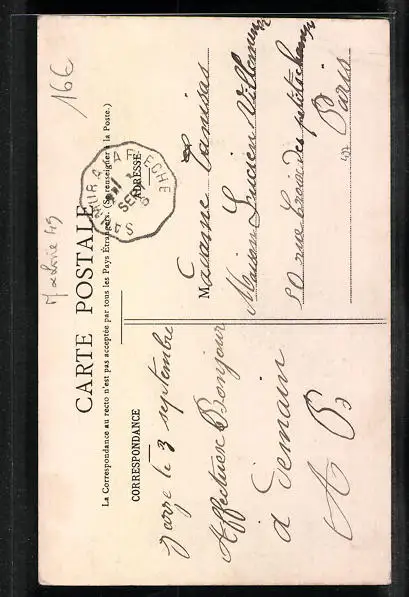 16€
M & Loire 49
CARTE POSTALE
La Correspondance au recto n'est pas acceptée par tous les Pays Étrangers. (Se renseigner à la Poste.)
CORRESPONDANCE
ADRESSE
SAUMUR A LA FLECHE
SEPT
Jarzé le 3 septembre
Affectueux Bonjour
à Demain
A B
Madame
Maison Lucien
50 rue Croix des petits champs
Paris